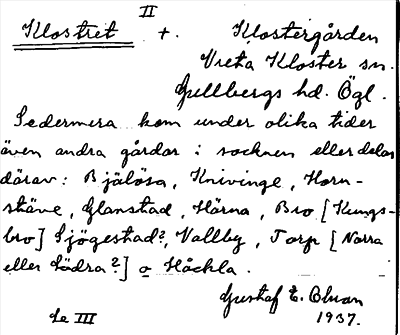 II
Klostret +. Klostergården
Vreta Kloster sn.
Gullbergs hd. Ögl.
Sedermera kom under olika tider
även andra gårdar i socknen eller delar
därav: Bjälösa, Knivinge, Horn-
stäve, Glanstad, Härna, Bro [Kungs-
bro] Sjögestad?, Vallby, Torp [Norra
eller Södra?] o Håckla.
Gustaf E. Bluan
Se III 1937.